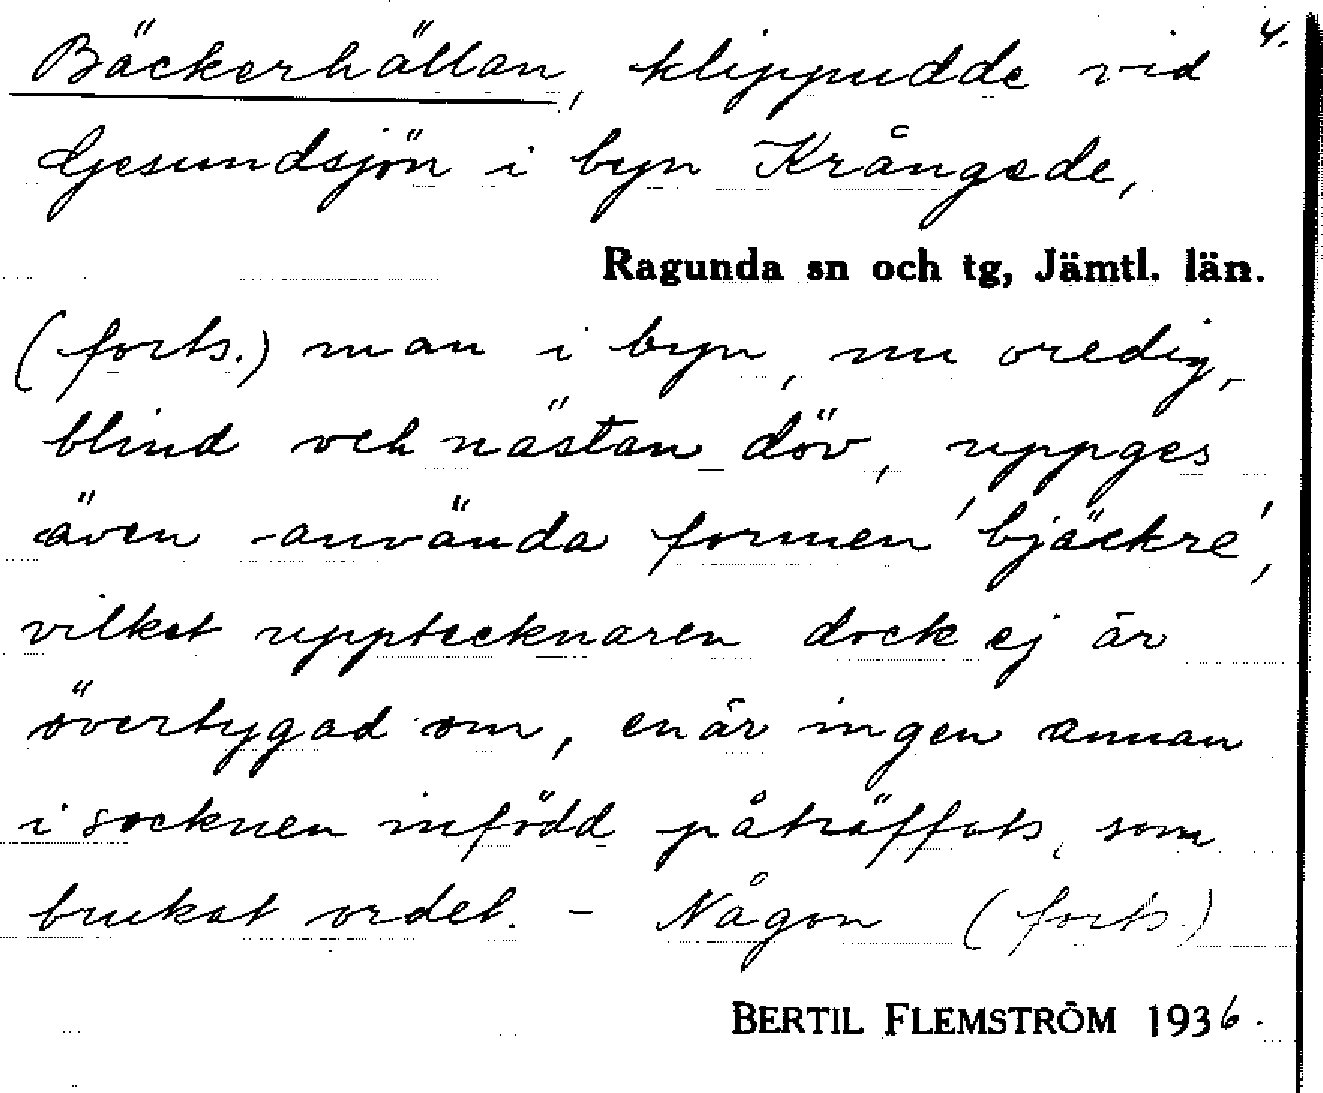 4.
Bäckerhällan, klippudde vid
Gesundsjön i byn Krångede,
Ragunda sn och tg, Jämtl. län.
(forts.) man i byn, nu oredig,
blind och nästan döv, uppges
även använda formen 'bjäckre',
vilket upptecknaren dock ej är
övertygad om, enär ingen annan
i socknen infödd påträffats, som
brukat ordet. - Någon (forts.)
BERTIL FLEMSTRÖM 1936.